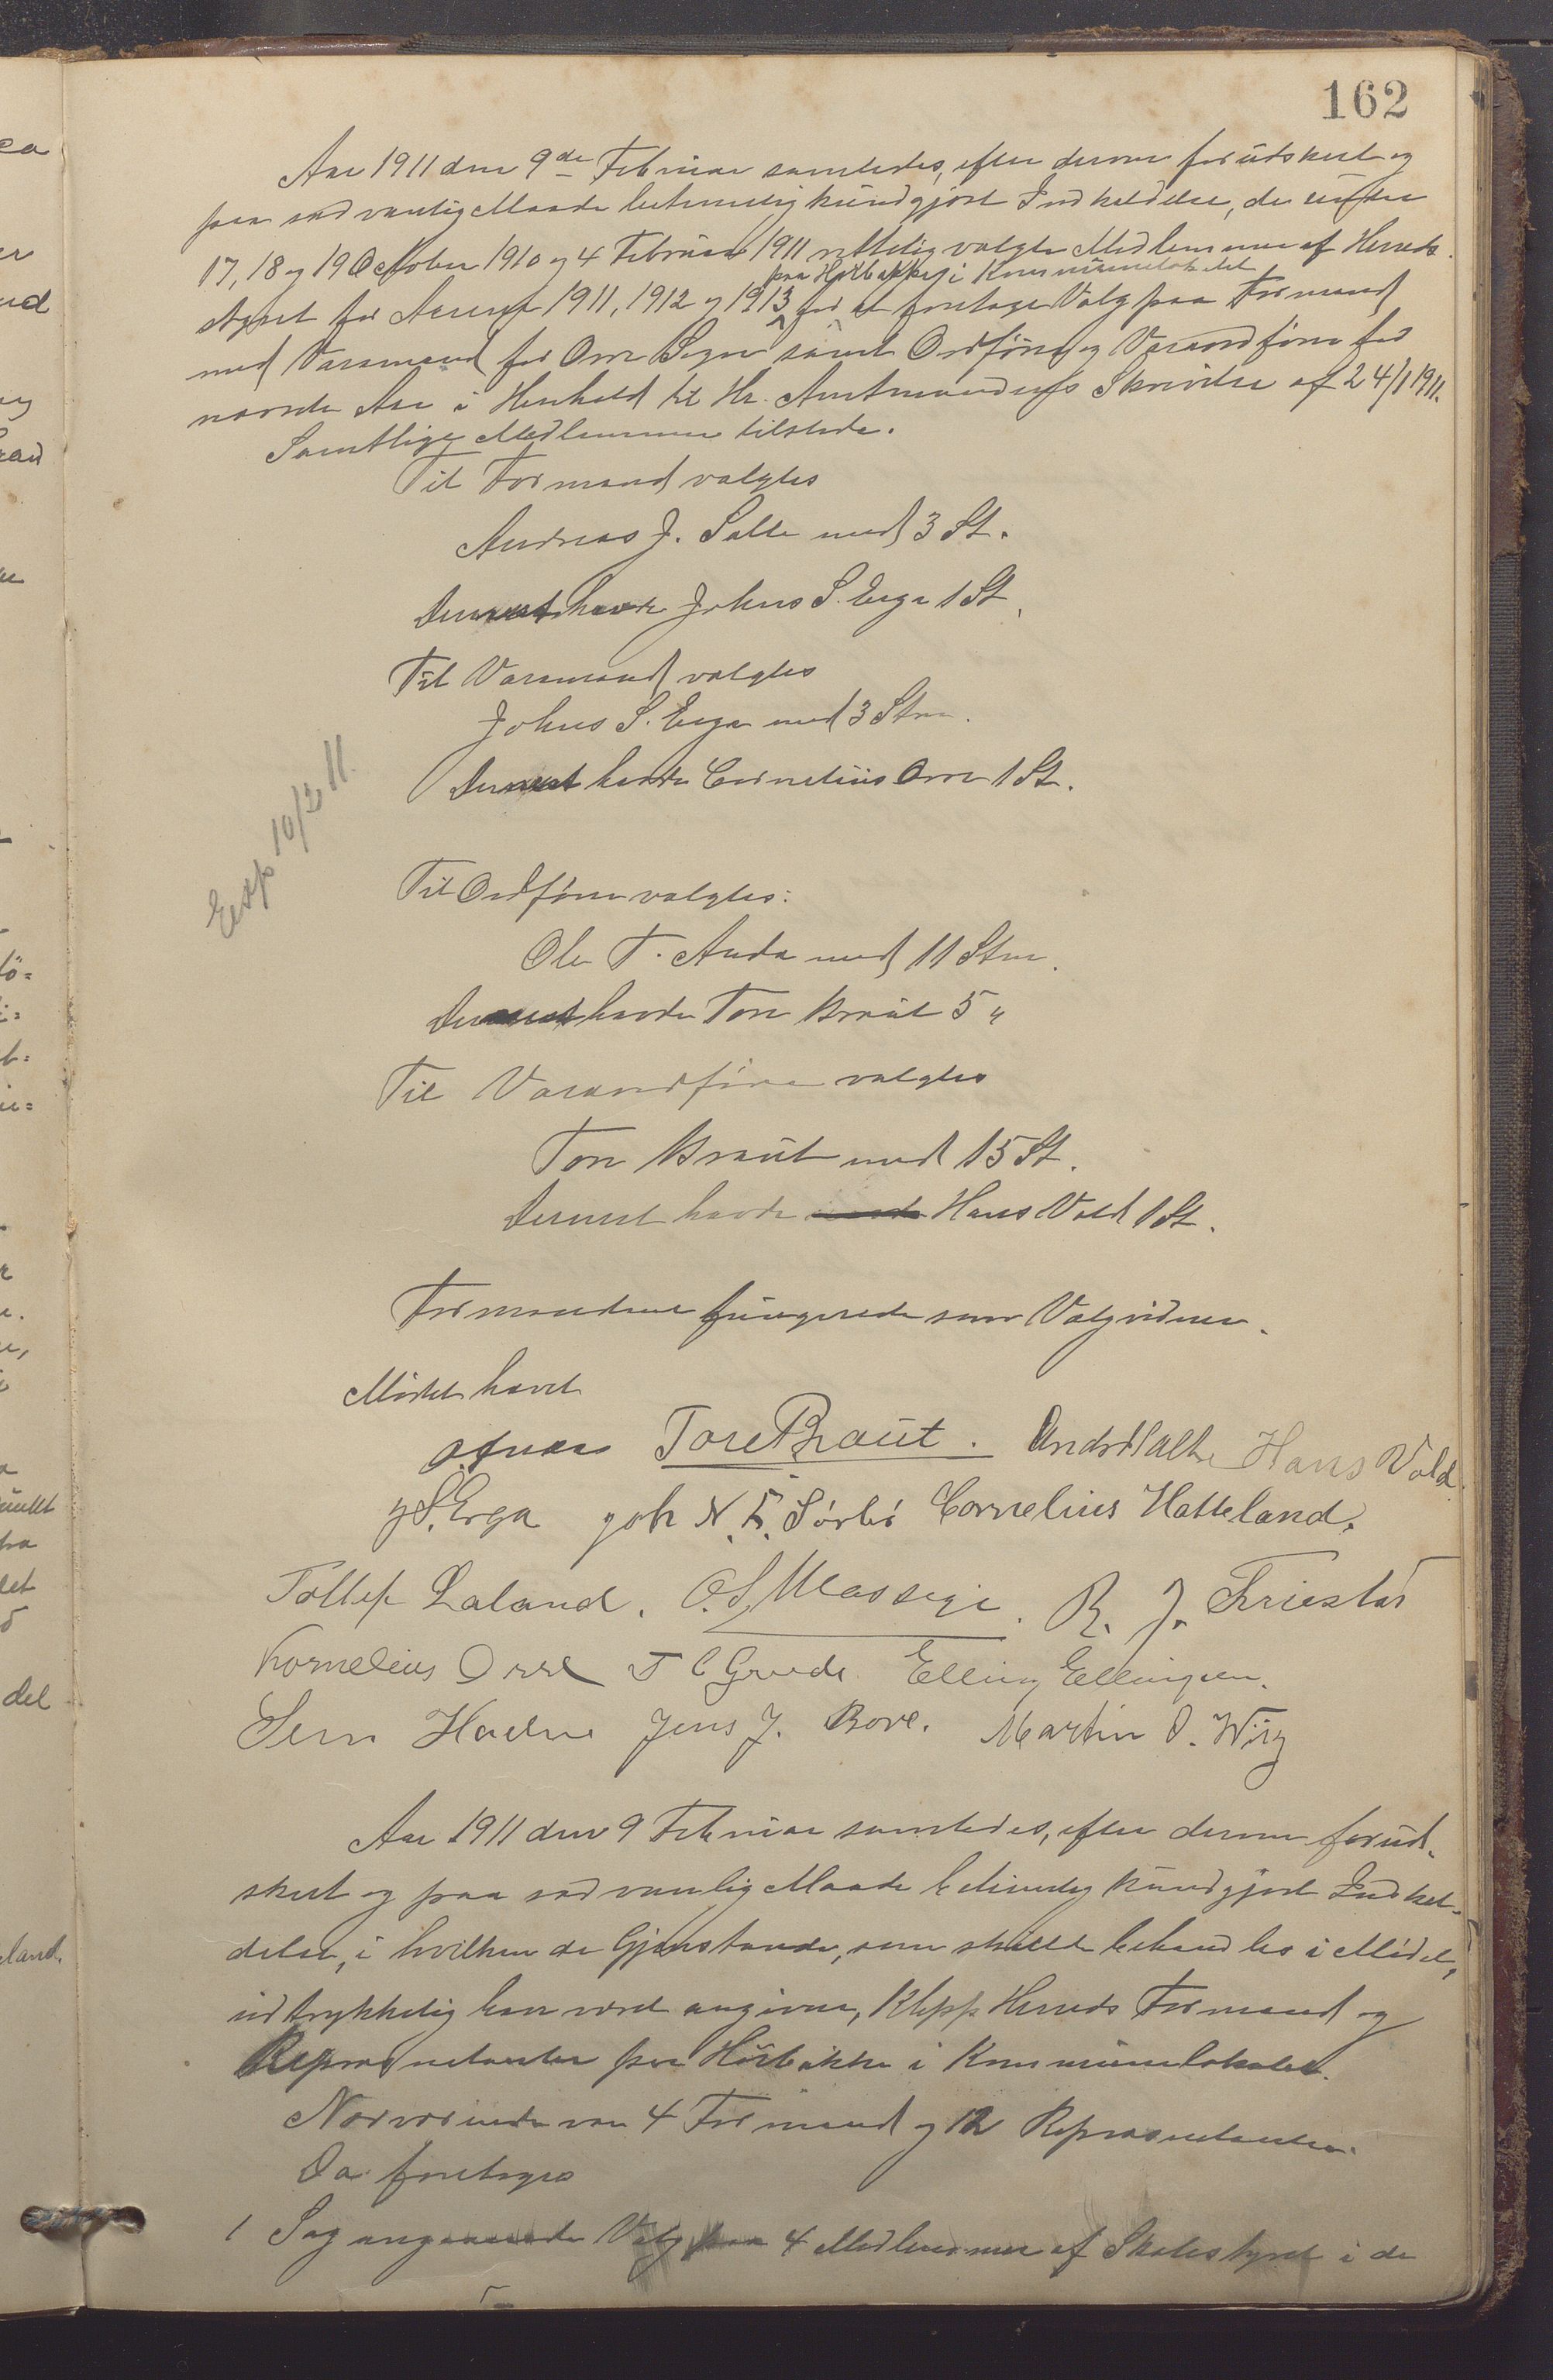 162
Aar 1911 den 9de Februar samledes, efter dernæst forudskeet og
paa sædvanlig Maade betimelig kundgjort Indkaldelse, de under
17, 18 og 19 October 1910 og 4 Februar 1911 rettelig valgte Medlemmer af Herreds
styret for Aarene 1911, 1912 og 1913 paa Hørbakke i Kommunelokalet for at foretage Valg paa Formand
med Varamand for Orre Sogn samt Ordfører og Varaordfører for
nævnte Aar i Henhold til Hr. Amtmandens Skrivelse af 24/1 1911.
Samtlige Medlemmer tilstede.
Til Formand valgtes
Andreas J. Salte med 3 St.
Dernæst havde Johns S. Erga 1 St.
Til Varamand valgtes
Johns S. Erga med 3 Stm.
Dernæst havde Cornelius Orre 1 St.
Exp 10/2 11.
Til Ordfører valgtes:
Ole T. Anda med 11 Stm.
Dernæst havde Tore Braut 5 "
Til Varaordfører valgtes
Tore Braut med 15 St.
Dernæst havde Hans Vold 1 St.
Formændene fungerede som Valgvidner.
Mødet hævet
Tore Braut. Andr Salte Hans Vold
J S. Erga Joh N. E. Sørbø Cornelius Hatteland.
Tollef Laland. O. S. Massige. R. J. Friestad
Kornelius Orre T C Grude Elling Ellingsen.
Sem Hadne Jens J. Bore. Martin O. Wiig
Aar 1911 den 9 Februar samledes, efter dernæst forud-
skeet og paa sædvanlig Maade betimelig kundgjort Indkal-
delse, i hvilken de Gjenstande, som skulle behandles i Mødet,
udtrykkelig har været angivne, Klepp Herreds Formænd og
Repræsentanter paa Hørbakke i Kommunelokalet.
Nærværende var 4 Formænd og 12 Repræsentanter.
Da foretoges
1 Sag angaaende Valg paa 4 Medlemmer af Skolestyret i de